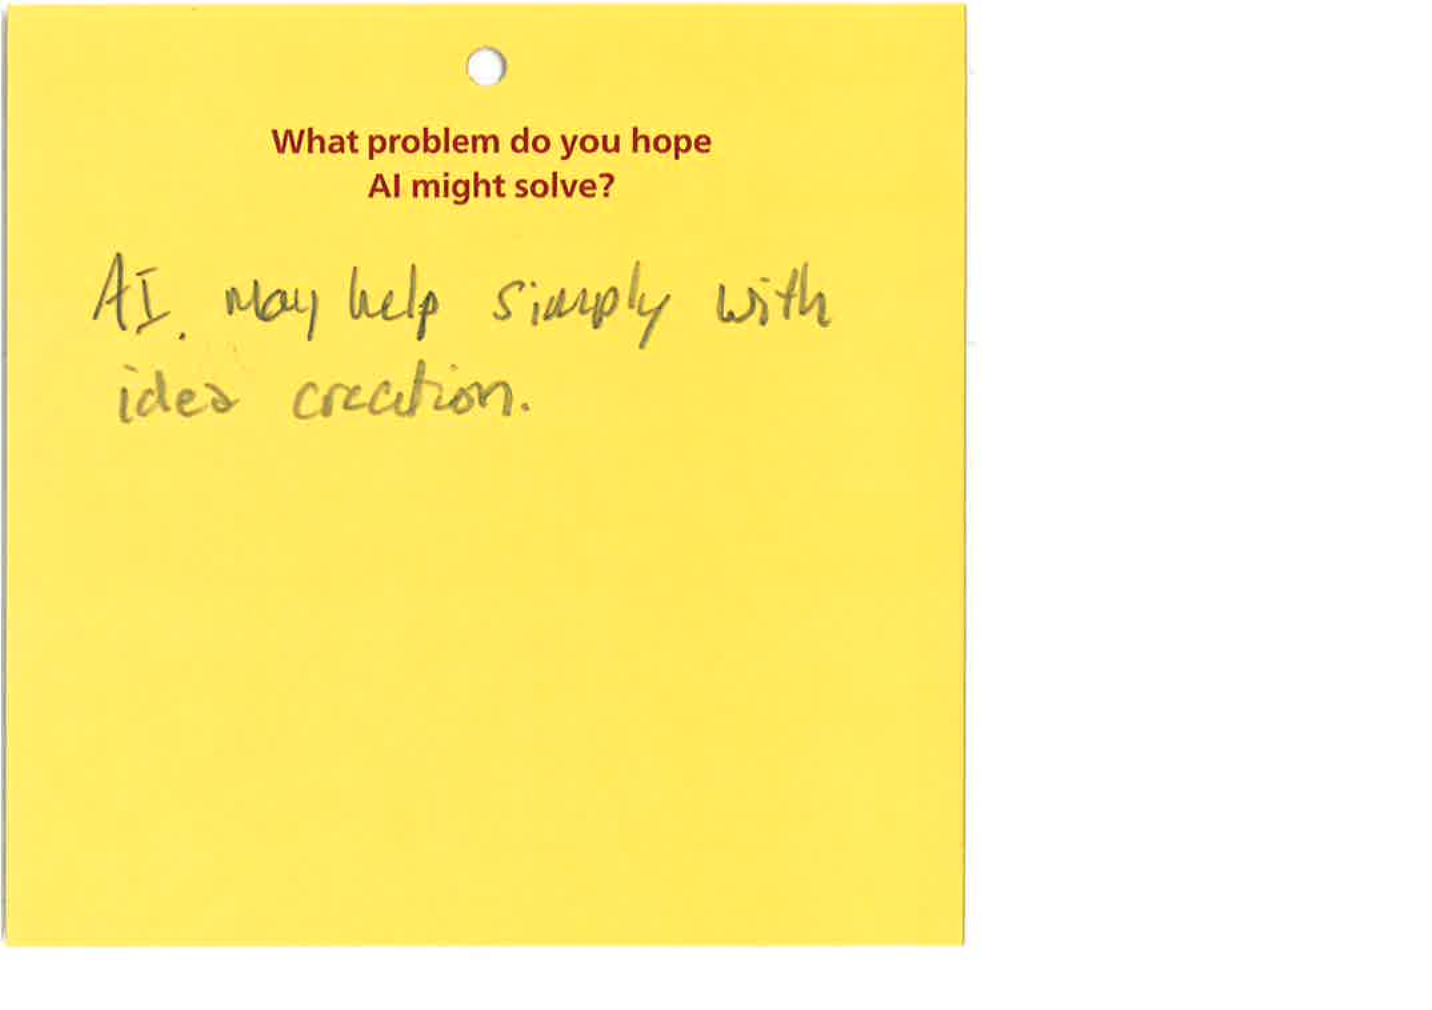 What problem do you hope
AI might solve?
AI. May help simply with
idea creation.